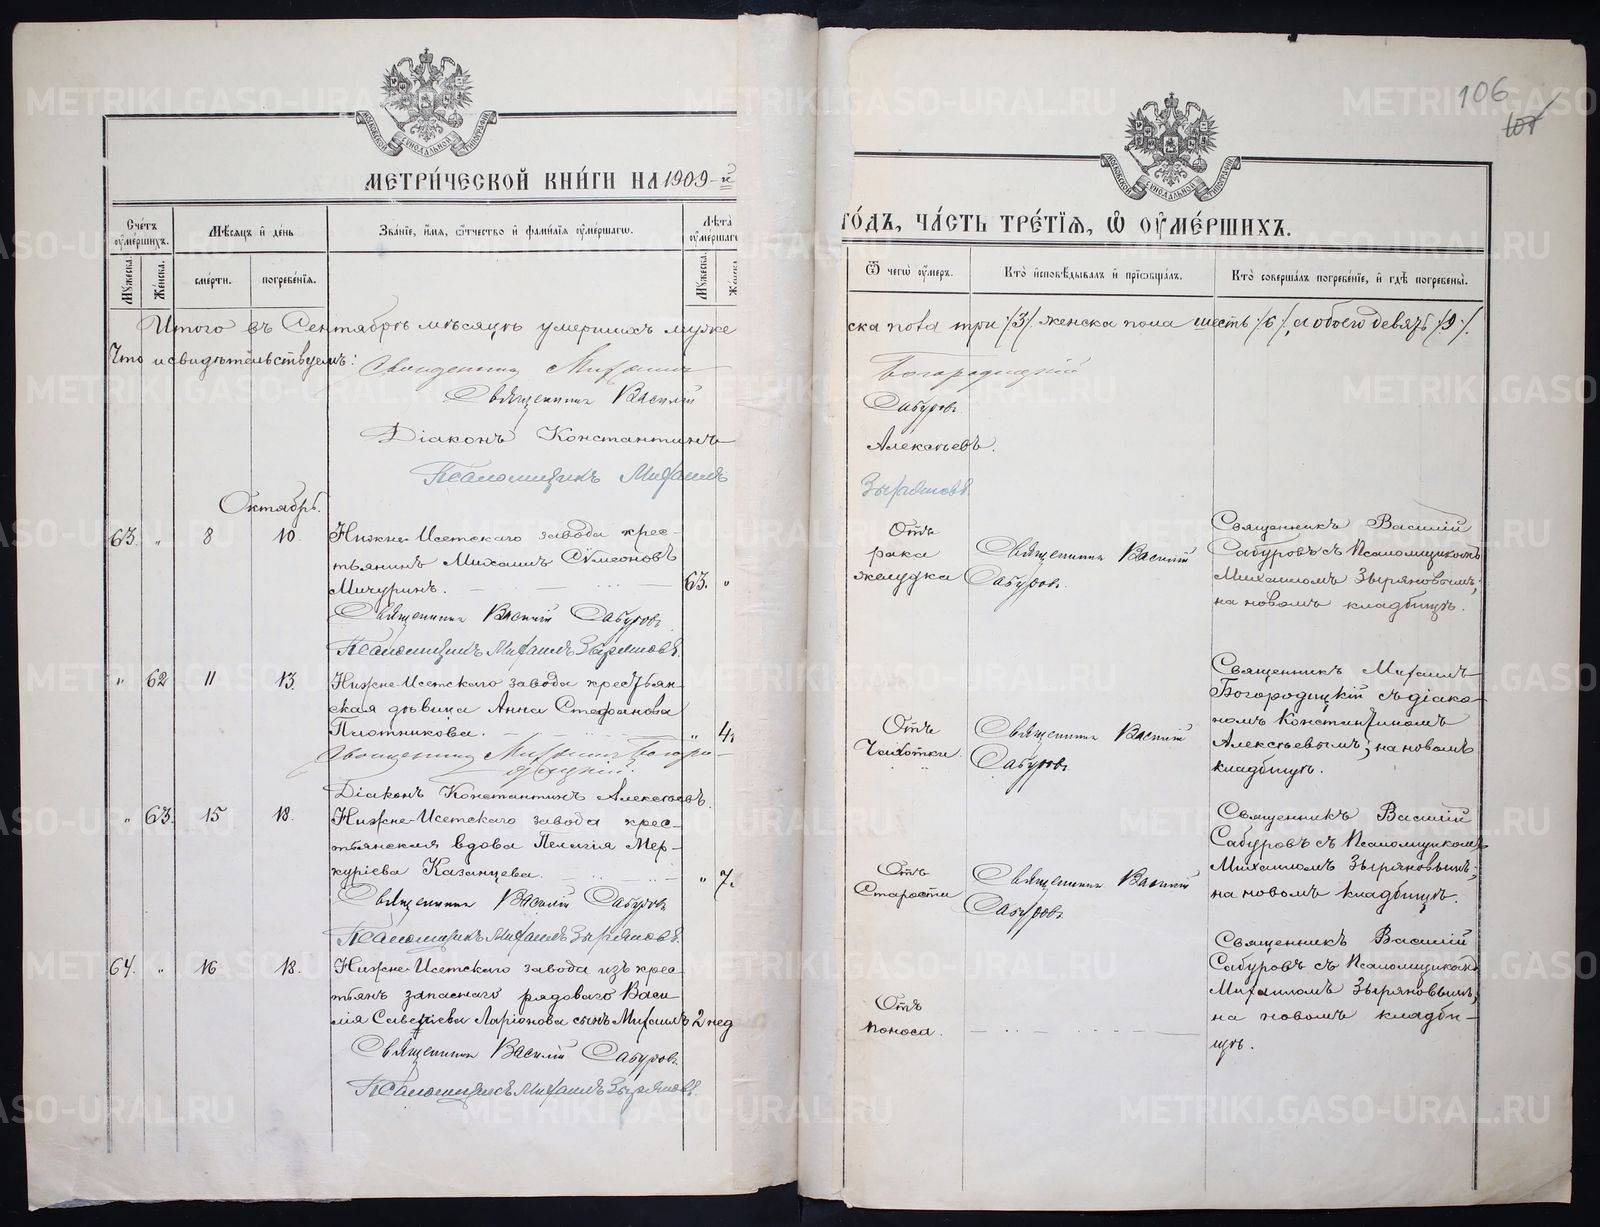 106
МЕТРИ́ЧЕСКОЙ КНИ́ГИ НА 1909-й
ГО́ДЪ, ЧА́СТЬ ТРЕ́ТІѦ, Ѽ ОУМЕ́РШИХЪ.
МОСКОВСКОЙ СѴНОДАЛЬНОЙ ТИПОГРАФІИ
МОСКОВСКОЙ СѴНОДАЛЬНОЙ ТИПОГРАФІИ
Сче́тъ оуме́ршихъ.
Мꙋжеска.
Же́нска.
Мѣ́сяцъ и҆ де́нь
сме́рти.
погребе́нїя.
Зва́нїе, и҆́мя, ѻ҆́тчество и҆ фами́лїя оуме́ршагѡ.
Лѣ́та оуме́ршагѡ
Мꙋжеска.
Же́нска
Ѿ чегѡ̀ оу́меръ.
Кто̀ и҆сповѣ́дывалъ и҆ прїѡбща́лъ.
Кто̀ соверша́лъ погребе́нїе, и҆ гдѣ̀ погребены̀.
Итого въ Сентябрѣ мѣсяцѣ умершихъ муже
ска пола три /3/, женска пола шесть /6/, а обоего девять /9/.
Что и свидѣтельствуемъ:
Священникъ Михаилъ
Богородицкій
Священникъ Василій
Сабуровъ
Діаконъ Константинъ
Алексѣевъ.
Псаломщикъ Михаилъ
Зыряновъ.
Октябрь.
63. " 8 10.
Нижне-Исетскаго завода крес-
тьянинъ Михаилъ Сѵмеоновъ
Мичуринъ. 63. "
Священникъ Василій Сабуровъ
Псаломщикъ Михаилъ Зыряновъ.
Отъ
рака
желудка
Священникъ Василій
Сабуровъ.
Священникъ Василій
Сабуровъ съ Псаломщикомъ
Михаиломъ Зыряновымъ;
на новомъ кладбищѣ.
" 62 11 13.
Нижне-Исетскаго завода крестьян-
ская дѣвица Анна Стефанова
Плотникова. " 4
Священникъ Михаилъ Богоро-
дицкій.
Діаконъ Константинъ Алексѣевъ.
Отъ
Чахотки
Священникъ Василій
Сабуровъ
Священникъ Михаилъ
Богородицкій съ діако-
номъ Константиномъ
Алексѣевымъ; на новомъ
кладбищѣ.
" 63. 15 18.
Нижне-Исетскаго завода крес-
тьянская вдова Пелагія Мер-
куріева Казанцева. " 7
Священникъ Василій Сабуровъ
Псаломщикъ Михаилъ Зыряновъ.
Отъ
Старости
Священникъ Василій
Сабуровъ
Священникъ Василій
Сабуровъ съ Псаломщикомъ
Михаиломъ Зыряновымъ;
на новомъ кладбищѣ.
64. " 16 18.
Нижне-Исетскаго завода изъ крес-
тьянъ запаснаго рядоваго Васи
лія Савеліева Ларіонова сынъ Михаилъ 2 нед
Священникъ Василій Сабуровъ.
Псаломщикъ Михаилъ Зыряновъ.
Отъ
поноса.
Священникъ Василій
Сабуровъ съ Псаломщикомъ
Михаиломъ Зыряновымъ;
на новомъ кладби-
щѣ.
METRIKI.GASO-URAL.RU